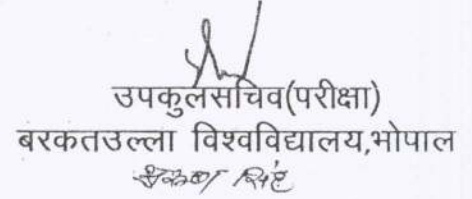 उपकुलसचिव(परीक्षा)
बरकतउल्ला विश्वविद्यालय,भोपाल
सिंह